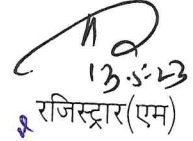 13.5.23
रजिस्ट्रार (एम)